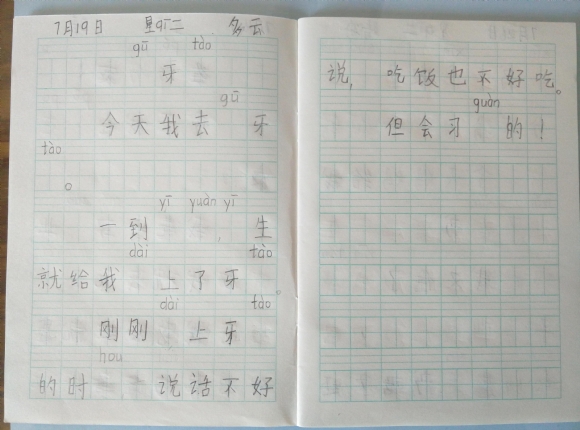 7月19日 星qī二 多云
gū tào
牙
gū
今天我去 牙
tào
。
yī yuàn yī
一到 , 生
dài tào
就给我 上了牙 。
dài tào
刚刚 上牙
hou
的时 说话不好
说, 吃饭也不好吃。
guàn
但会习 的!